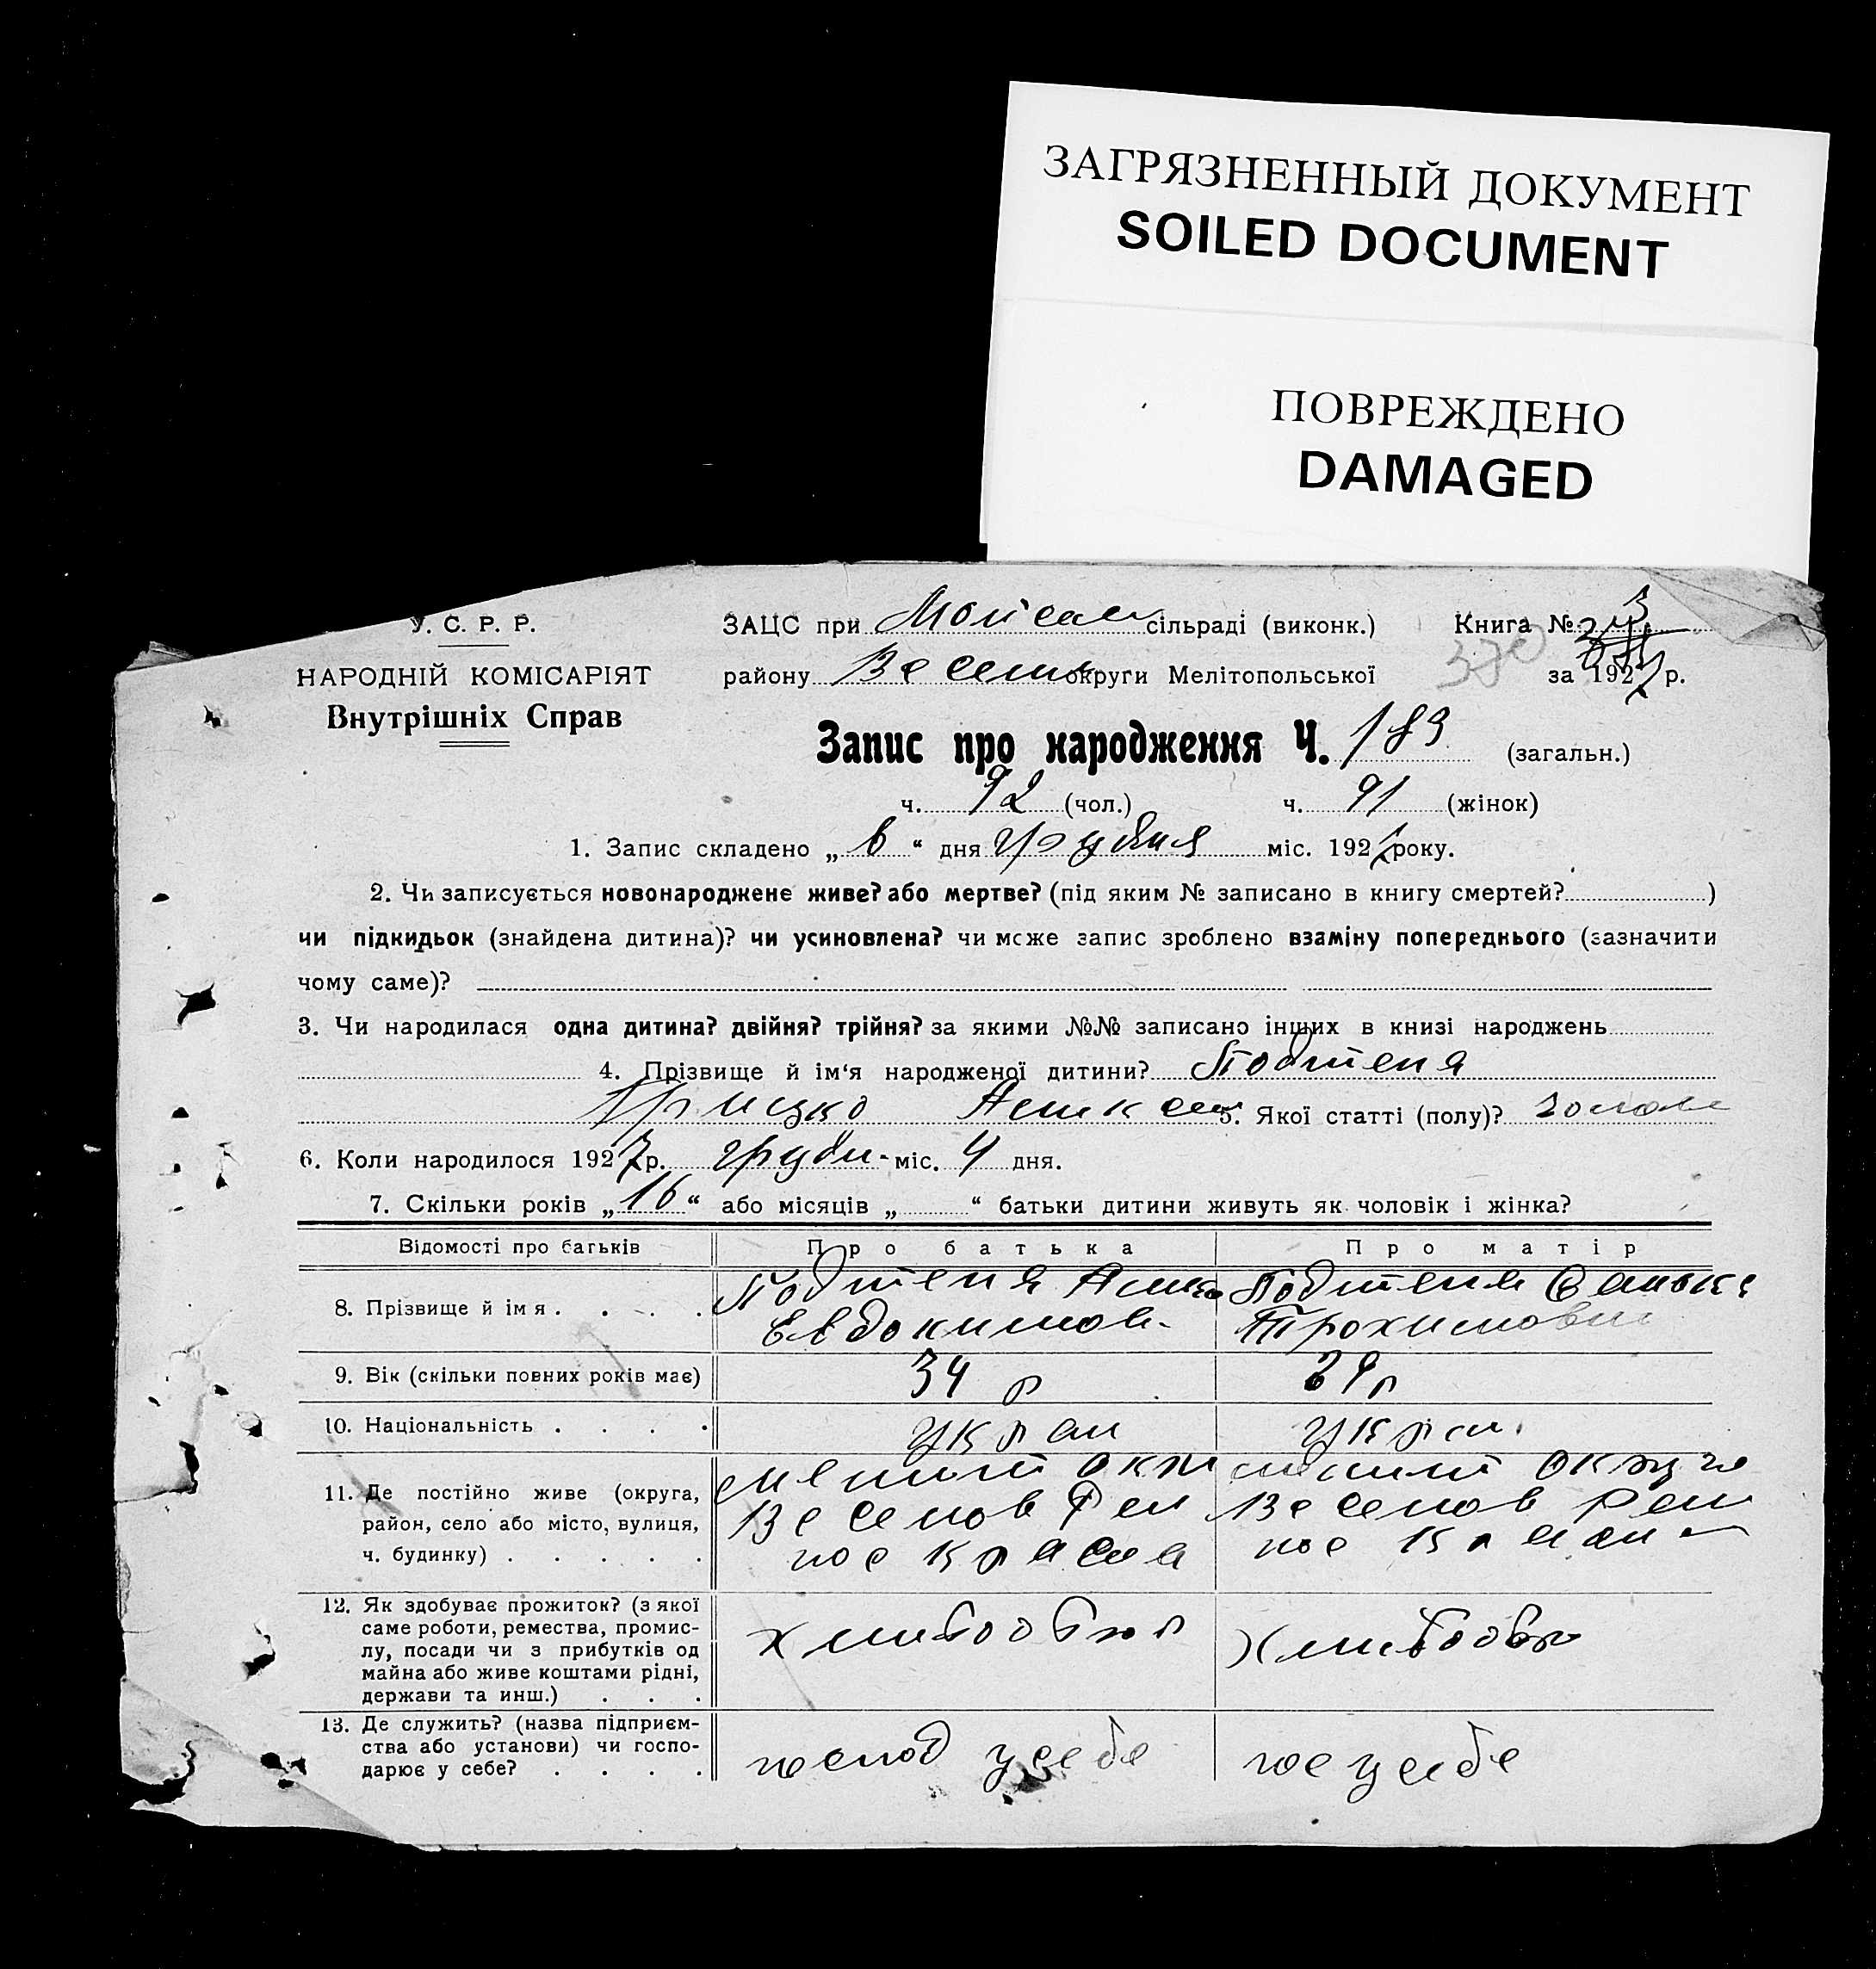 ЗАГРЯЗНЕННЫЙ ДОКУМЕНТ
SOILED DOCUMENT
ПОВРЕЖДЕНО
DAMAGED
У. С. Р. Р.
НАРОДНІЙ КОМІСАРІЯТ
Внутрішніх Справ
ЗАЦС при сільраді (виконк.)
району округи Мелітопольської
Книга №
370
за 1927 р.
Запис про народження Ч. 183 (загальн.)
ч. 92 (чол.) ч. 91 (жінок)
1. Запис складено „ 6 “ дня грудня міс. 1927 року.
2. Чи записується новонароджене живе? або мертве? (під яким № записано в книгу смертей? )
чи підкидьок (знайдена дитина)? чи усиновлена? чи може запис зроблено взаміну попереднього (зазначити
чому саме)?
3. Чи народилася одна дитина? двійня? трійня? за якими №№ записано інших в книзі народжень
4. Прізвище й ім‘я народженої дитини? Подтеня
Грицко 5. Якої статті (полу)?
6. Коли народилося 1927 р. грудн. міс. 4 дня.
7. Скільки років „ 16 “ або місяців „ “ батьки дитини живуть як чоловік і жінка?
Відомості про батьків Про батька Про матір
8. Прізвище й імя . . . . Подтеня Подтеня
Евдокимов. Трохимовн
9. Вік (скільки повних років має) 34 р р
10. Національність . . . . украи украи.
11. Де постійно живе (округа,
район, село або місто, вулиця,
ч. будинку) . . . . .
Мелит окр Мелит округа
Веселов Рай Веселов Рай
12. Як здобуває прожиток? (з якої
саме роботи, ремества, промис-
лу, посади чи з прибутків од
майна або живе коштами рідні,
держави та инш.) . . .
хлибообюр хлибообю
13. Де служить? (назва підприєм-
ства або установи) чи госпо-
дарює у себе? . . . .
господ у себе гос у себе